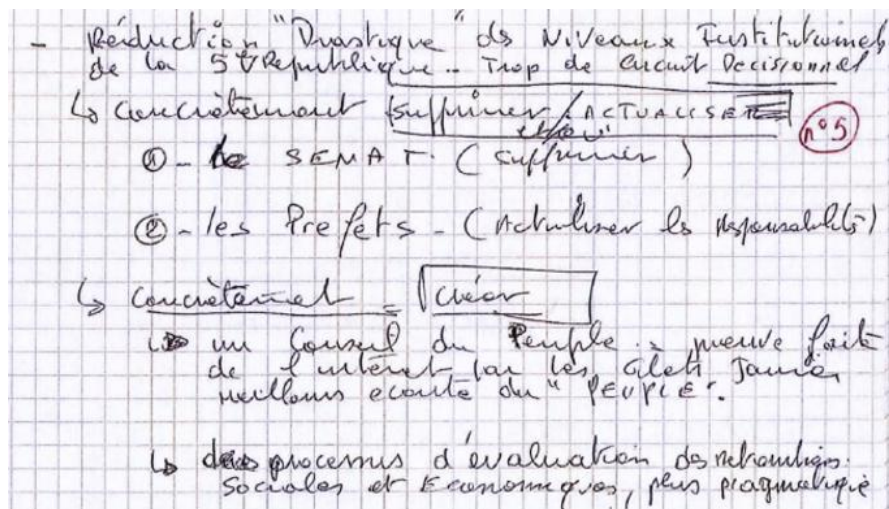 - Réduction "Drastique" des Niveaux Institutionnels
de la 5e République.. Trop de circuit Décisionnel
↳ concrètement supprimer / ACTUALISER
et/ou n°5
① - le SENAT. (supprimer)
② - les Préfets - (Actualiser les responsabilités)
↳ Concrètement = Créer
↳ un Conseil du Peuple : preuve faite
de l'intérêt par les Gilets Jaunes
meilleurs écoute du "PEUPLE".
↳ des processus d'évaluation des
Sociales et Economiques, plus pragmatique